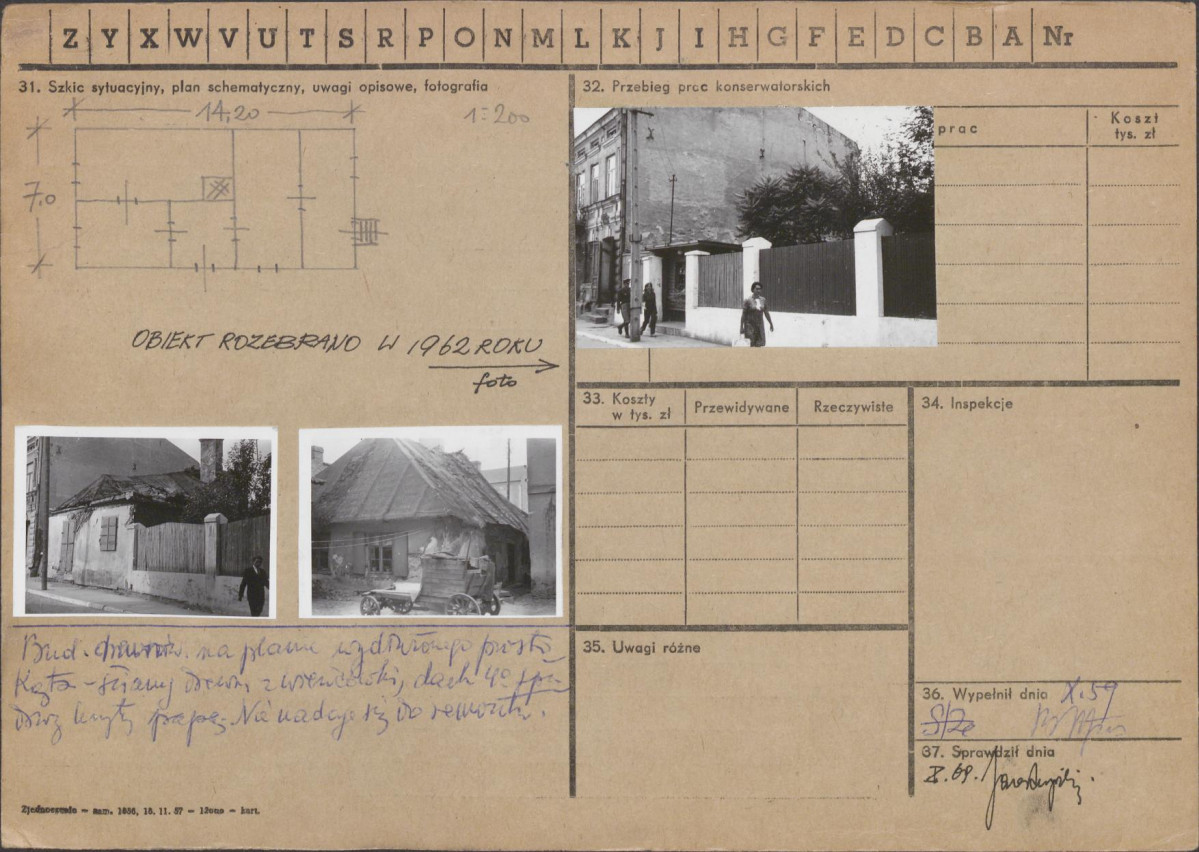 Z Y X W V U T S R P O N M L K J I H G F E D C B A Nr
31. Szkic sytuacyjny, plan schematyczny, uwagi opisowe, fotografia
14,20
1:200
7.0
OBIEKT ROZEBRANO W 1962 ROKU
foto
Bud. na planie wydłużonego prosto
kąta - ściany drewn. z wieńcówki, dach 4o spa
dowy kryty papą. Nie nadaje się do remontu.
Zjednoczenie — zam. 1656, 15. 11. 57 — 12000 — kart.
32. Przebieg prac konserwatorskich
prac
Koszt
tys. zł
33. Koszty
w tys. zł
Przewidywane
Rzeczywiste
34. Inspekcje
35. Uwagi różne
36. Wypełnił dnia X.59
37. Sprawdził dnia